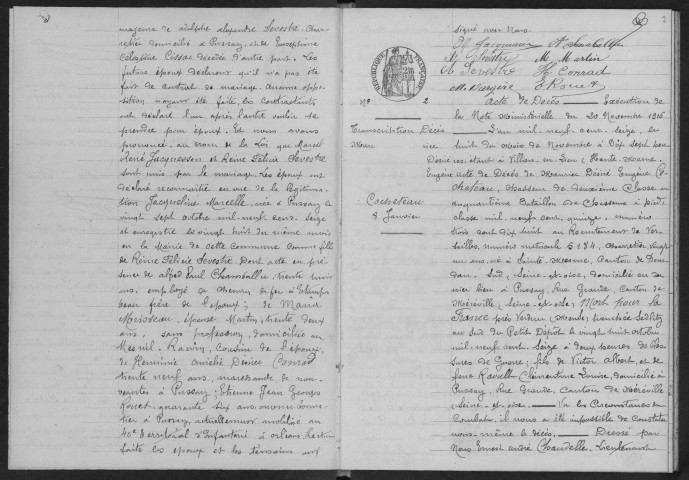 majeure de Adolphe Alexandre Sevestre, char-
retier domicilié à Pussay, et de Joséphine
Célestine Cissac décédée d'autre part. Les
futurs époux déclarent qu'il n'a pas été
fait de contrat de mariage. Aucune oppo-
sition n'ayant été faite, les contractants
ont déclaré l'un après l'autre vouloir se
prendre pour époux. Et nous avons
prononcé, au nom de la Loi, que Marcel
René Jacquesson et Reine Félicie Sevestre
sont unis par le mariage. Les époux ont
déclaré reconnaître en vue de la légitima-
tion Jacqueline Marcelle, née à Pussay le
vingt sept octobre mil neuf cent seize
et enregistrée le vingt huit du même mois
en la Mairie de cette Commune comme fille
de Reine Félicie Sevestre. Dont acte en pré-
sence de Alfred Paul Chamballu, trente huit
ans, employé au chemin de fer à Etampes
beau frère de l'époux; de Maria
épouse Martin, trente deux
ans, sans profession, domiciliée au
Mesnil-Racoin, cousine de l'époux,
de Herminie Aurélie Désirée Conrad
trente neuf ans, marchande de nou-
veautés à Pussay; Etienne Jean Georges
Rouet, quarante six ans,
à Pussay, actuellement mobilisé au
40e Territorial d'Infanterie à Orléans, lecture
faite les époux et les témoins ont
2
signé avec Nous.
M. Jacquesson A. Chamballu
M. Martin
Sevestre H. Conrad
E. Rouet
RÉPUBLIQUE FRANÇAISE
No 2
Transcription Décès
Cocheteau
8 Janvier
Acte de Décès — Exécution de
la Note Ministérielle du 20 Novembre 1915
L'an mil neuf cent seize, le
huit du mois de Novembre à dix sept heures
étant à Villers en (Haute Marne)
acte de Décès de Maurice Désiré Eugène Co-
cheteau, chasseur de deuxième classe au
cinquantième Bataillon de Chasseurs à pied,
classe mil neuf cent quinze, numéro
trois cent dix huit au Recrutement de Ver-
sailles, numéro matricule 5184, charretier, vingt
un ans, né à Sainte-Mesme, Canton de Dour-
dan-Sud, Seine-et-Oise, domicilié en der-
nier lieu à Pussay, Rue Grande, Canton de
Méréville, (Seine-et-Oise) Mort pour la
France près Verdun (Meuse) tranchée Seditz
au Sud du Petit Dépôt le vingt huit octobre
mil neuf cent seize à deux heures de bles-
sures de Guerre; fils de Victor Albert, et de
feue Clémentine Louise, domicilié à
Pussay, Rue Grande, Canton de Méréville
(Seine-et-Oise) — Vu les Circonstances du
Combat, il nous a été impossible de constater
nous-même le décès. — Dressé par
Nous Ernest André Chaudelle, Lieutenant